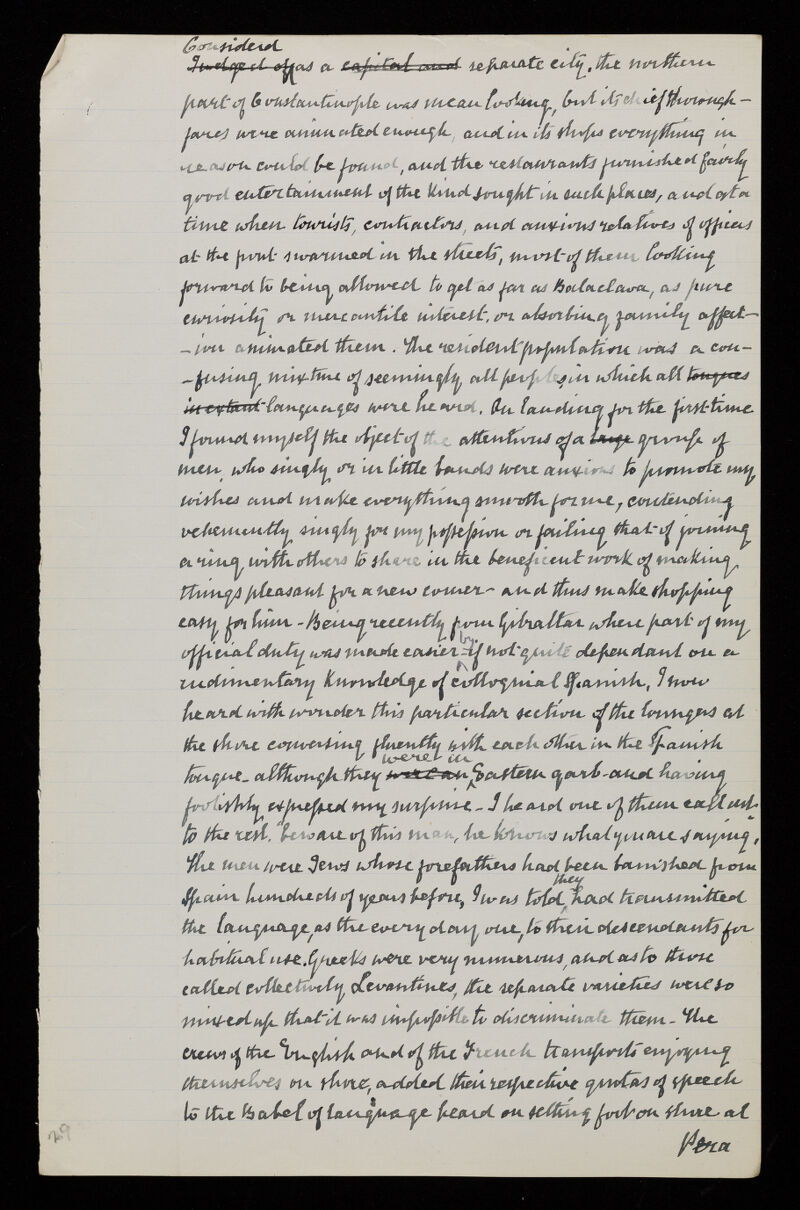 Considerd
Judged of as a capital and separate city. the northern
part of Constantinople was mean looking, but its chief thorough-
fares were animated enough, and in its shops everything in
reason could be found, and the restaurants furnished fairly
good entertainment of the kind sought in such places, and at a
time when tourists, contractors, and anxious relatives of officers
at the front swarmed in the streets, most of them looking
forward to being allowed to get as far as Balaclava, as pure
curiosity or mercantile interest. or absorbing family affect-
-ion animated them. The resident population was a con-
-fusing mixture of seemingly all peoples, in which all tongues
in extant languages were heard. On landing for the first time
I found myself the object of the attentions of a large group of
men, who singly or in little bands were anxious to promote my
wishes and make everything smooth for me, contending
vehemently singly for my possession or failing that of joining
a ring with others to share in the beneficent work of making
things pleasant for a new comer - and thus make shopping
easy for him - Being recently from Gibraltar where part of my
by
official duty was made easier - if not quite dependant on a
rudimentary knowledge of colloquial Spanish, I now
heard with wonder this particular section of the loungers at
the shore conversing fluently with each other in the Spanish
were in
tongue - although they wore an Eastern garb - and having
foolishly expressed my surprise - I heard one of them call out
to the rest. "beware of this man, he knows what you are saying".
The men were Jews whose forefathers had been banished from
they
Spain hundreds of years before, I was told, had transmitted
the language, as the every day one, to their descendants for
habitual use. Greeks were very numerous, and as to those
called collectively Levantines, the separate varieties were so
mixed up that it was impossible to discriminate them - The
crews of the English and of the French transports enjoying
themselves on shore, added their respective quotas of speech
to the Babel of language heard on setting foot on shore at
Pera
29